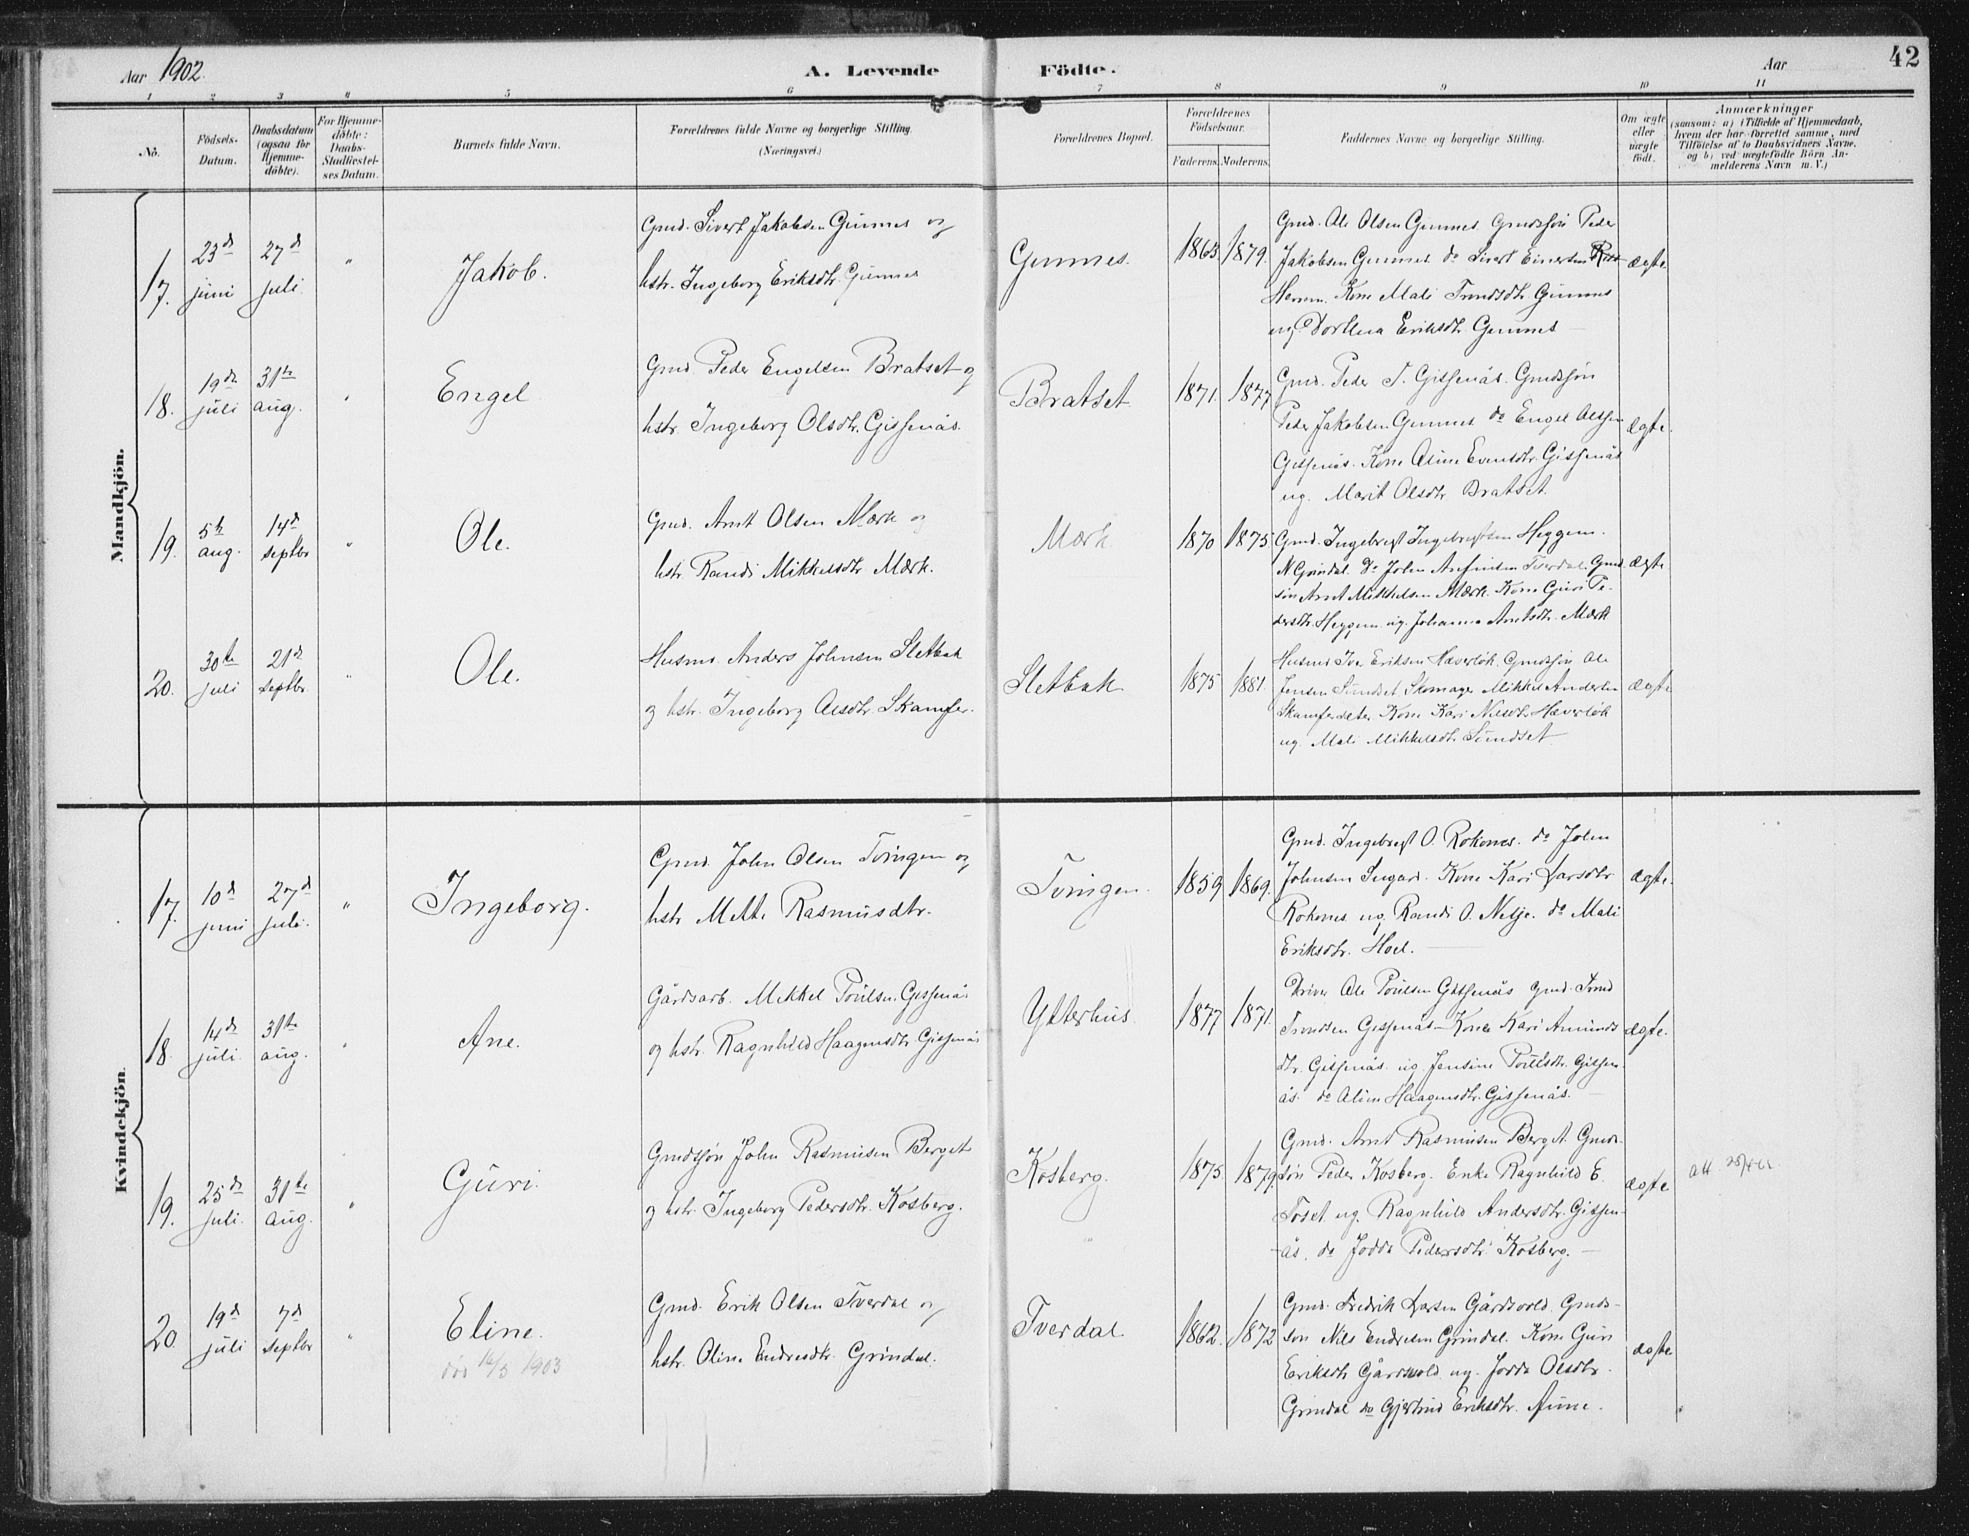 Aar 1902.
A. Levende Födte.
Aar
42
1 2 3 4 5 6 7 8 9 10 11
No.
Födsels-Datum.
Daabsdatum (ogsaa for Hjemmedöbte).
For Hjemmedöbte: Daabs-Stadfæstelses Datum.
Barnets fulde Navn.
Forældrenes fulde Navne og borgerlige Stilling. (Næringsvei.)
Forældrenes Bopæl.
Forældrenes Födselsaar.
Faderens. Moderens.
Faddernes Navne og borgerlige Stilling.
Om ægte eller uægte födt.
Anmærkninger
(saasom: a) i Tilfælde af Hjemmedaab,
hvem der har forrettet samme, med
Tilföielse af to Daabsvidners Navne,
og b) ved uægtefödte Börn An-
melderens Navn m. V.)
Mandkjön.
17. 23de juni 27de juli " Jakob.
Gmd. Sivert Jakobsen Gunnes og
hstr. Ingeborg Eriksdtr. Gunnes
Gunnes. 1863 1879.
Gmd. Ole Olsen Gunnes. Gmdssøn Peder
Jakobsen Gunnes do Sivert Einersen
Kone Mali Trondsdtr. Gunnes
ug. Dorthea Eriksdtr. Gunnes
ægte.
18. 19de juli 31te aug. " Engel
Gmd. Peder Engelsen Bratset og
hstr. Ingeborg Olsdtr. Gisnås.
Bratset 1871. 1877
Gmd. Peder J. Gisnås. Gmdssøn
Peder Jakobsen Gunnes do Engel
Kone Eventsdtr.
ug. Marit Olsdtr Bratset.
ægte.
19. 5te aug. 14de septbr " Ole.
Gmd. Arnt Olsen Mærk og
hstr. Randi Mikkelsdtr Mærk.
Mærk 1870 1875
Gmd. Ingebregt Ingebregtsen Heggem.
N Grindal. do John Tverdal. Gmd
søn Arnt Mikkelsen Mærk. Kone Guri Pe-
dersdtr. Heggem ug. Johanna Arntsdtr. Mærk
ægte
20. 30te juli 21de septbr " Ole.
Husmd. Anders Johnsen Sletbak
og hstr. Ingeborg Olsdtr. Skamfer.
Sletbak 1875 1881.
Husmd Iver Eriksen Gmdssøn Ole
Jensen Sundset Skomager Mikkel Andersen
Kone Kari Nilsdtr
ug. Mali Mikkelsdtr. Sundset
ægte
Kvindekjön.
17. 10de juni 27de juli. " Ingeborg.
Gmd. John Olsen Tøingen og
hstr. Mette Rasmusdtr.
Tøingen. 1859 1869.
Gmd. Ingebregt O. Rokones. do John
Johnsen Kone Kari Larsdtr
Rokones ug. Randi O. do Mali
Eriksdtr. Hoel.
ægte.
18. 14de juli. 31te aug. " Ane.
Gårdsarb. Mikkel Poulsen Gisnås
og hstr. Ragnhild Haagensdtr. Gisnås
Ytterhus. 1877 1871.
Ole Poulsen Gisnås Gmd. Trond
Trondsen Gisnås Kone Kari Amunds
dtr. Gisnås. ug Jensine Poulsdtr. Gisn
ås. do Haagensdtr. Gisnås.
ægte.
19. 25de juli. 31te aug. " Guri.
Gmdssøn John Rasmusen Berget
og hstr. Ingeborg Pedersdtr. Kosberg.
Kosberg. 1875. 1879.
Gmd. Arnt Rasmusen Berget. Gmds-
søn Peder Kosberg. Enke Ragnhild E.
Toset ug. Ragnhild Andersdtr. Gisn-
ås. do Jodda Pedersdtr. Kosberg.
ægte
20. 19de juli 7de septbr " Eline.
død 16/3 1903
Gmd. Erik Olsen Tverdal og
hstr. Oline Endresdtr. Grindal.
Tverdal. 1862. 1872
Gmd. Fredrik Larsen Gårdsvold. Gmds-
søn Nils Endresen Grindal. Kone Guri
Eriksdtr Gårdsvold ug. Jodda Olsdtr.
Grindal do Gjertrud Eriksdtr. Aune.
ægte